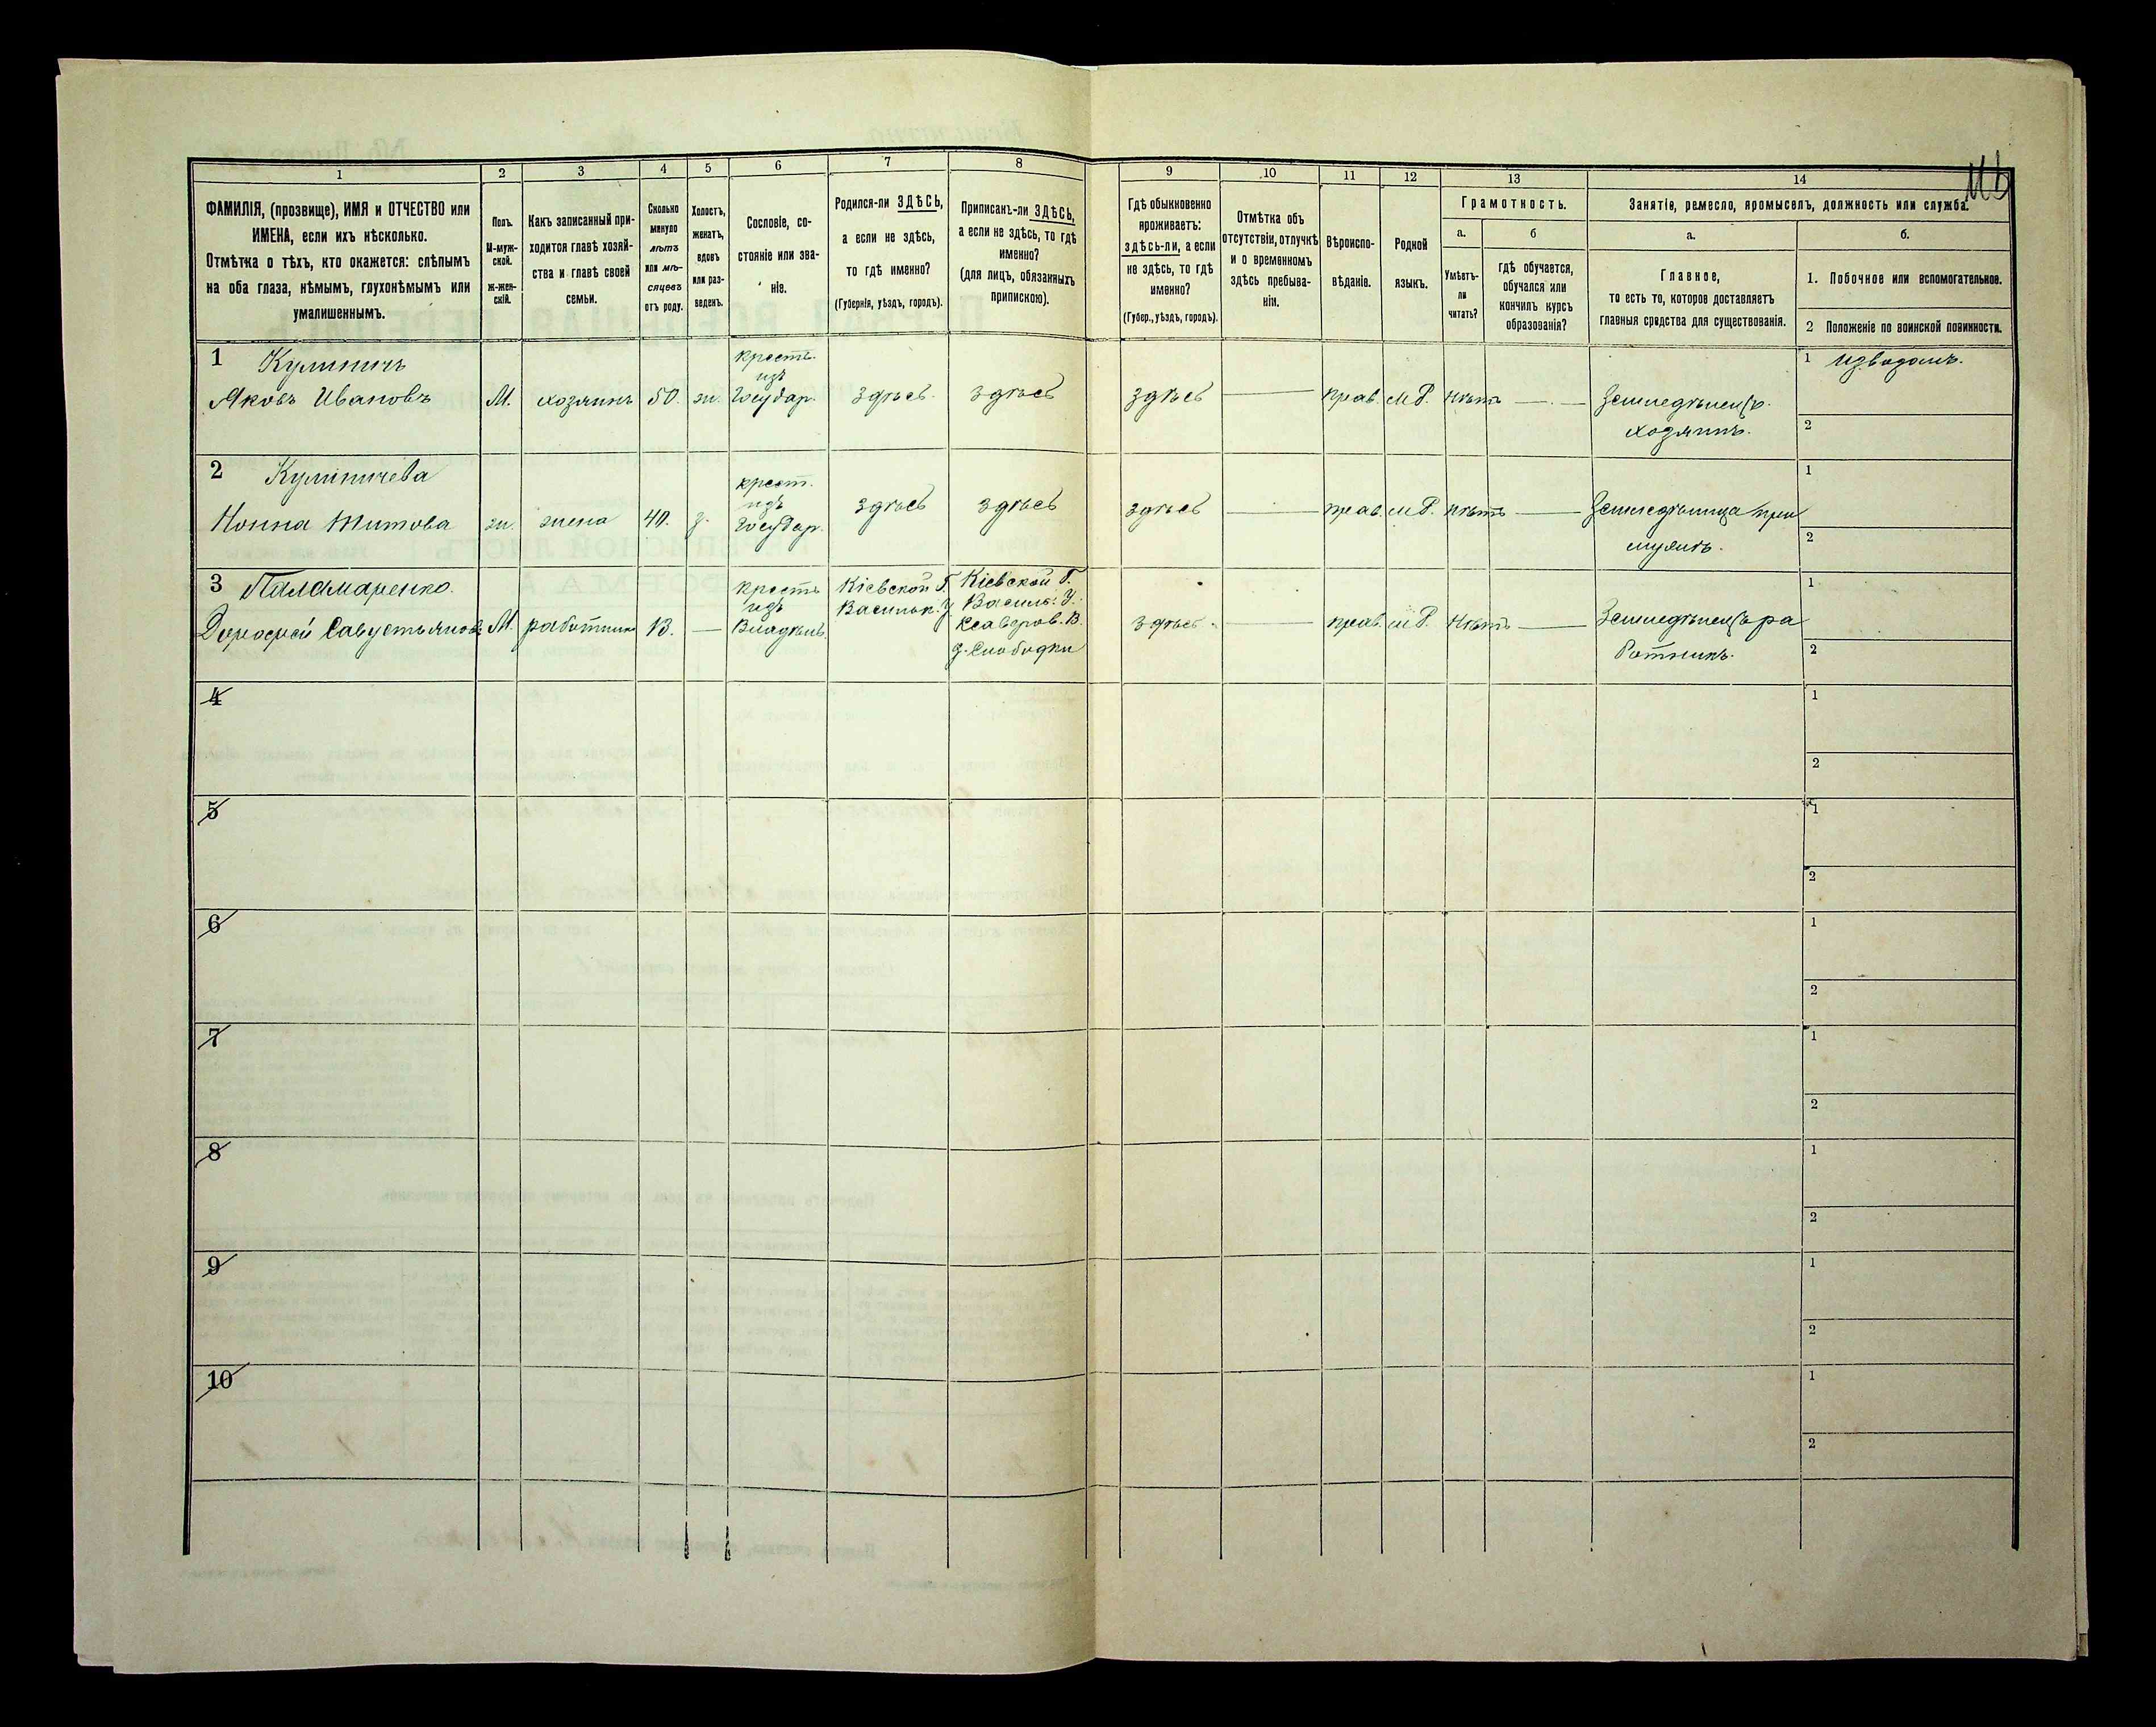 1 2 3 4 5 6 7 8 9 10 11 12 13 14
ФАМИЛІЯ, (прозвище), ИМЯ и ОТЧЕСТВО или
ИМЕНА, если ихъ нѣсколько.
Отмѣтка о тѣхъ, кто окажется: слѣпымъ
на оба глаза, нѣмымъ, глухонѣмымъ или
умалишеннымъ.
Полъ.
М-муж-
ской.
ж-жен-
скій.
Какъ записанный при-
ходится главѣ хозяй-
ства и главѣ своей
семьи.
Сколько
минуло
лѣтъ
или мѣ-
сяцевъ
отъ роду.
Холостъ,
женатъ,
вдовъ
или раз-
веденъ.
Сословіе, со-
стояніе или зва-
ніе.
Родился-ли ЗДѢСЬ,
а если не здѣсь,
то гдѣ именно?
(Губернія, уѣздъ, городъ).
Приписанъ-ли ЗДѢСЬ,
а если не здѣсь, то гдѣ
именно?
(для лицъ, обязанныхъ
припискою).
Гдѣ обыкновенно
проживаетъ:
здѣсь-ли, а если
не здѣсь, то гдѣ
именно?
(Губер., уѣздъ, городъ).
Отмѣтка объ
отсутствіи, отлучкѣ
и о временномъ
здѣсь пребыва-
ніи.
Вѣроиспо-
вѣданіе.
Родной
языкъ.
Грамотность.
а.
Умѣетъ-
ли
читать?
б
гдѣ обучается,
обучался или
кончилъ курсъ
образованія?
Занятіе, ремесло, промыселъ, должность или служба.
а.
Главное,
то есть то, которое доставляетъ
главныя средства для существованія.
б.
1. Побочное или вспомогательное.
2 Положеніе по воинской повинности.
1 Кулиничъ
Яковъ Ивановъ
М.
хозяинъ
50.
ж.
крестъ.
изъ
Государ.
здѣсь.
здѣсь
здѣсь
—
прав.
М.Р.
нѣтъ
—
Земледѣлецъ.
хозяинъ.
1
2
2 Кулиничева
Нонна Титова
ж.
жена
40.
з.
крест.
изъ
Государ.
здѣсь
здѣсь
здѣсь
—
прав.
М.Р.
нѣтъ
—
Земледѣлица при
мужѣ.
1
2
3 Паламаренко.
М.
работникъ
крестъ
изъ
Владѣль.
Кіевской Г.
Васильк. У.
Кіевской Г.
Василь: У.
Ксаверов. В.
д. Слободки
здѣсь.
—
прав.
М.Р.
Нѣтъ
—
Земледѣлецъ ра
ботникъ.
1
2
4
1
2
5
1
2
6
1
2
7
1
2
8
1
2
9
1
2
10
1
2